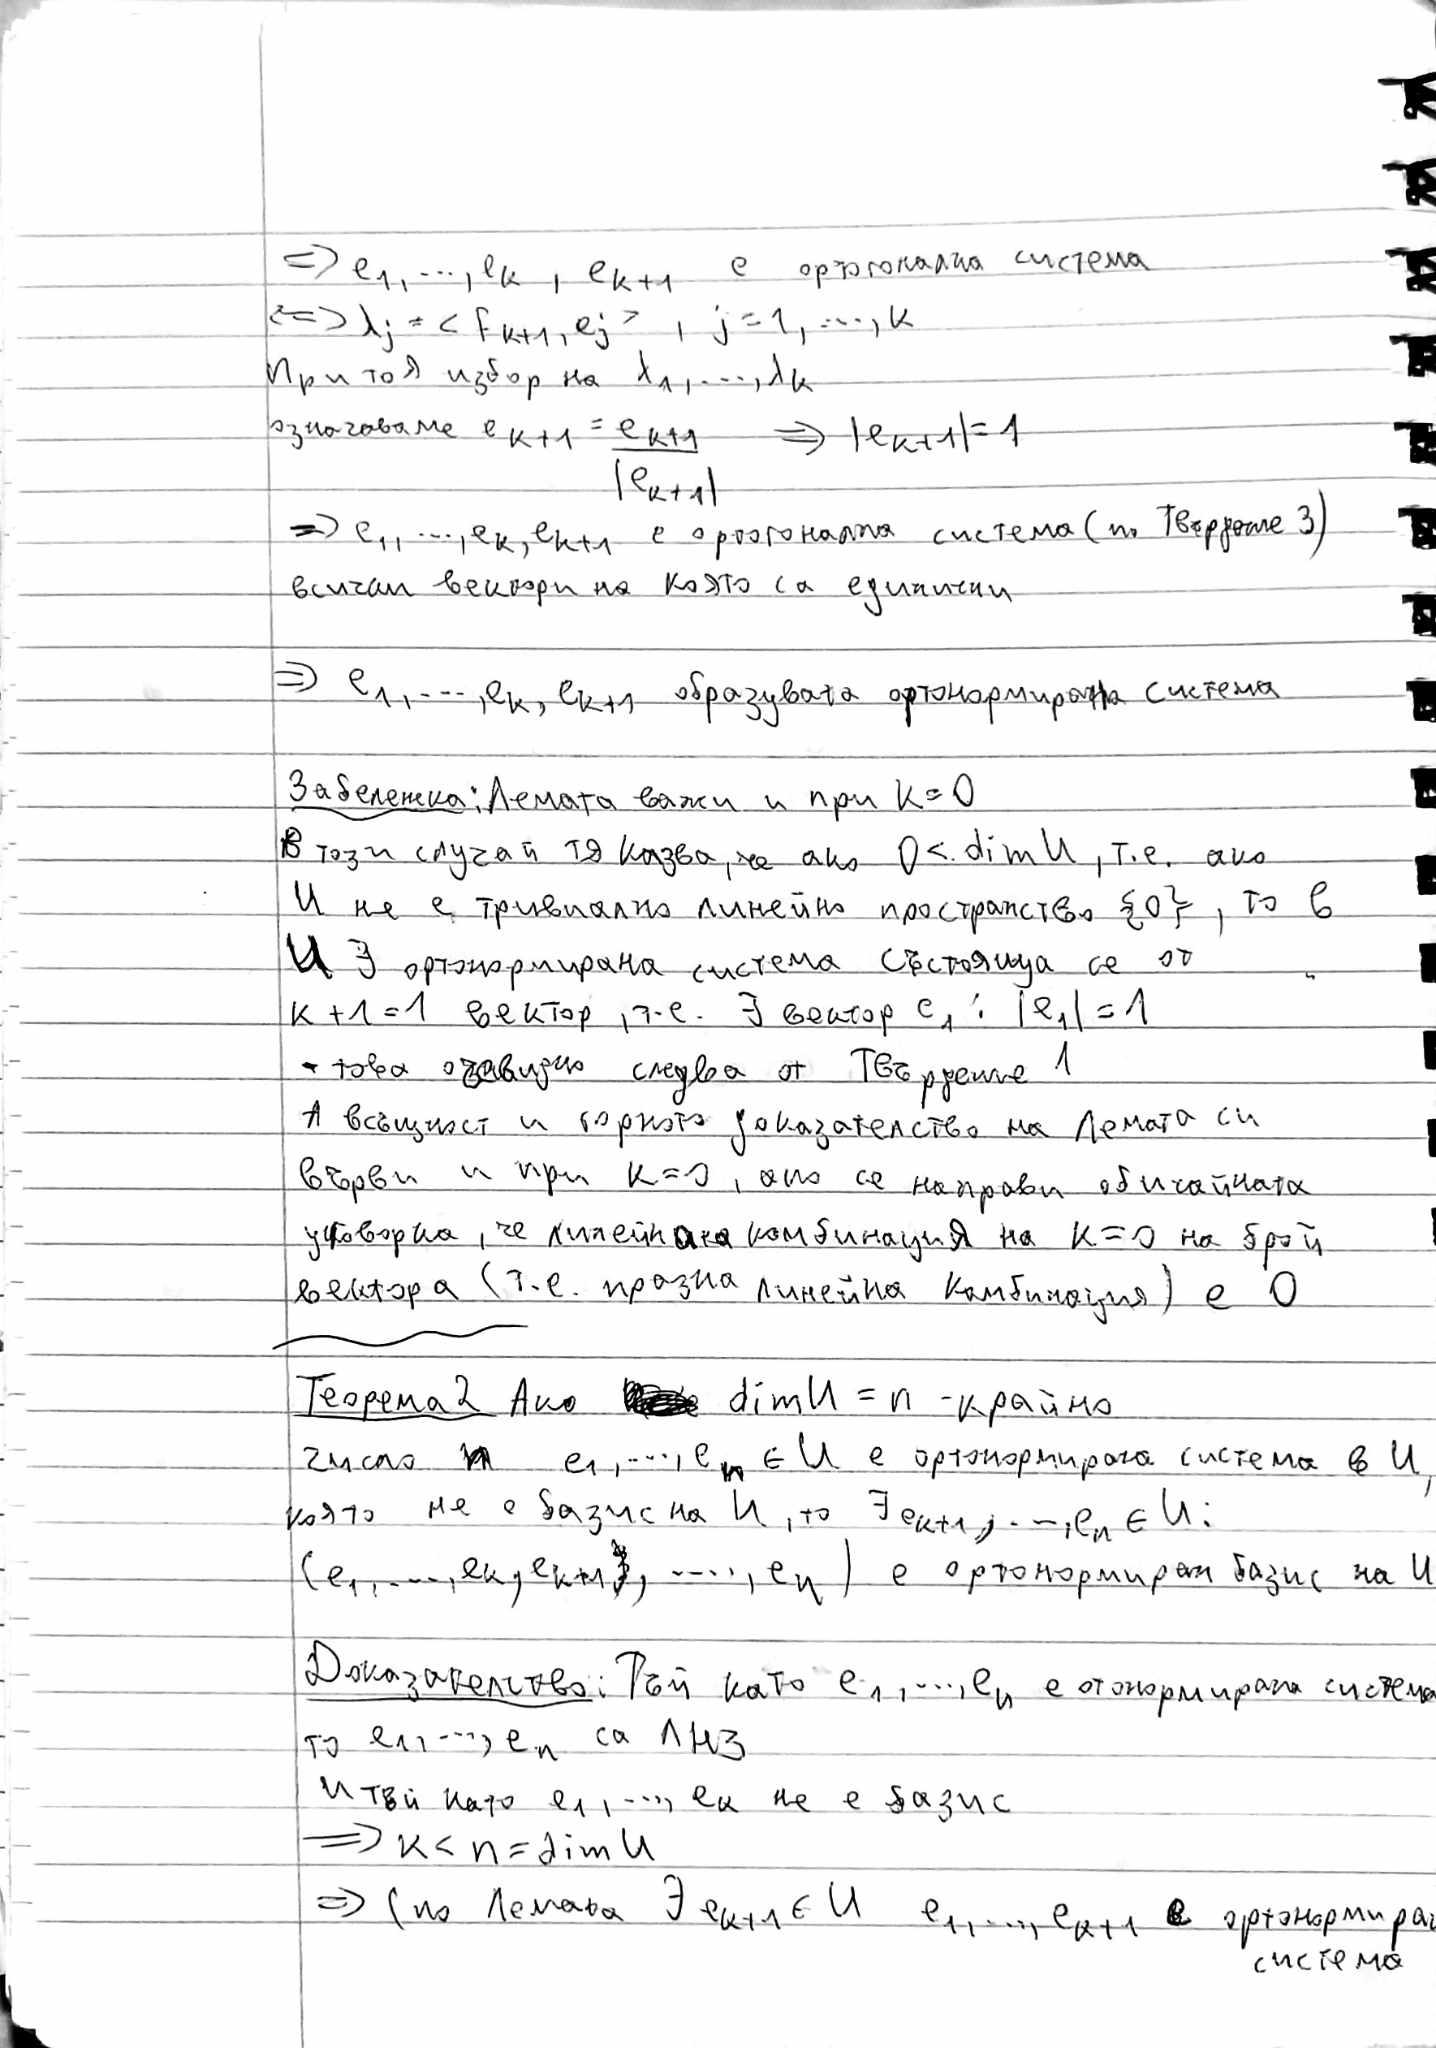 => e1, ..., ek, ek+1 е ортогонална система
<=> λj = <fk+1, ej>, j=1, ..., k
При тоя избор на λ1, ..., λk
означаваме ek+1 = ek+1/|ek+1| => |ek+1|=1
=> e1, ..., ek, ek+1 е ортогонална система (по Твърдение 3)
всички вектори на която са единични
=> e1, ..., ek, ek+1 образувата ортонормирана система
Забележка: Лемата важи и при k=0
В този случай тя казва, че ако 0 < dim U, т.е. ако
U не е тривиално линейно пространство {0}, то в
U ∃ ортонормирана система състояща се от
k+1=1 вектор, т.е. ∃ вектор e1: |e1|=1
- това очевидно следва от Твърдение 1
А всъщност и горното доказателство на Лемата си
върви и при k=0, ако се направи обичайната
уговорка, че линейната комбинация на k=0 на брой
вектора (т.е. празна линейна комбинация) е 0
Теорема 2 Ако dim U = n - крайно
число и e1, ..., en ∈ U е ортонормирана система в U,
която не е базис на U, то ∃ ek+1, ..., en ∈ U:
(e1, ..., ek, ek+1, ...., en) е ортонормиран базис на U
Доказателство: Тъй като e1, ..., en е отонормирана система
то e1, ..., en са ЛНЗ
и тъй като e1, ..., ek не е базис
=> k < n = dim U
=> (по Лемата ∃ ek+1 ∈ U e1, ..., ek+1 е ортонормиран
система